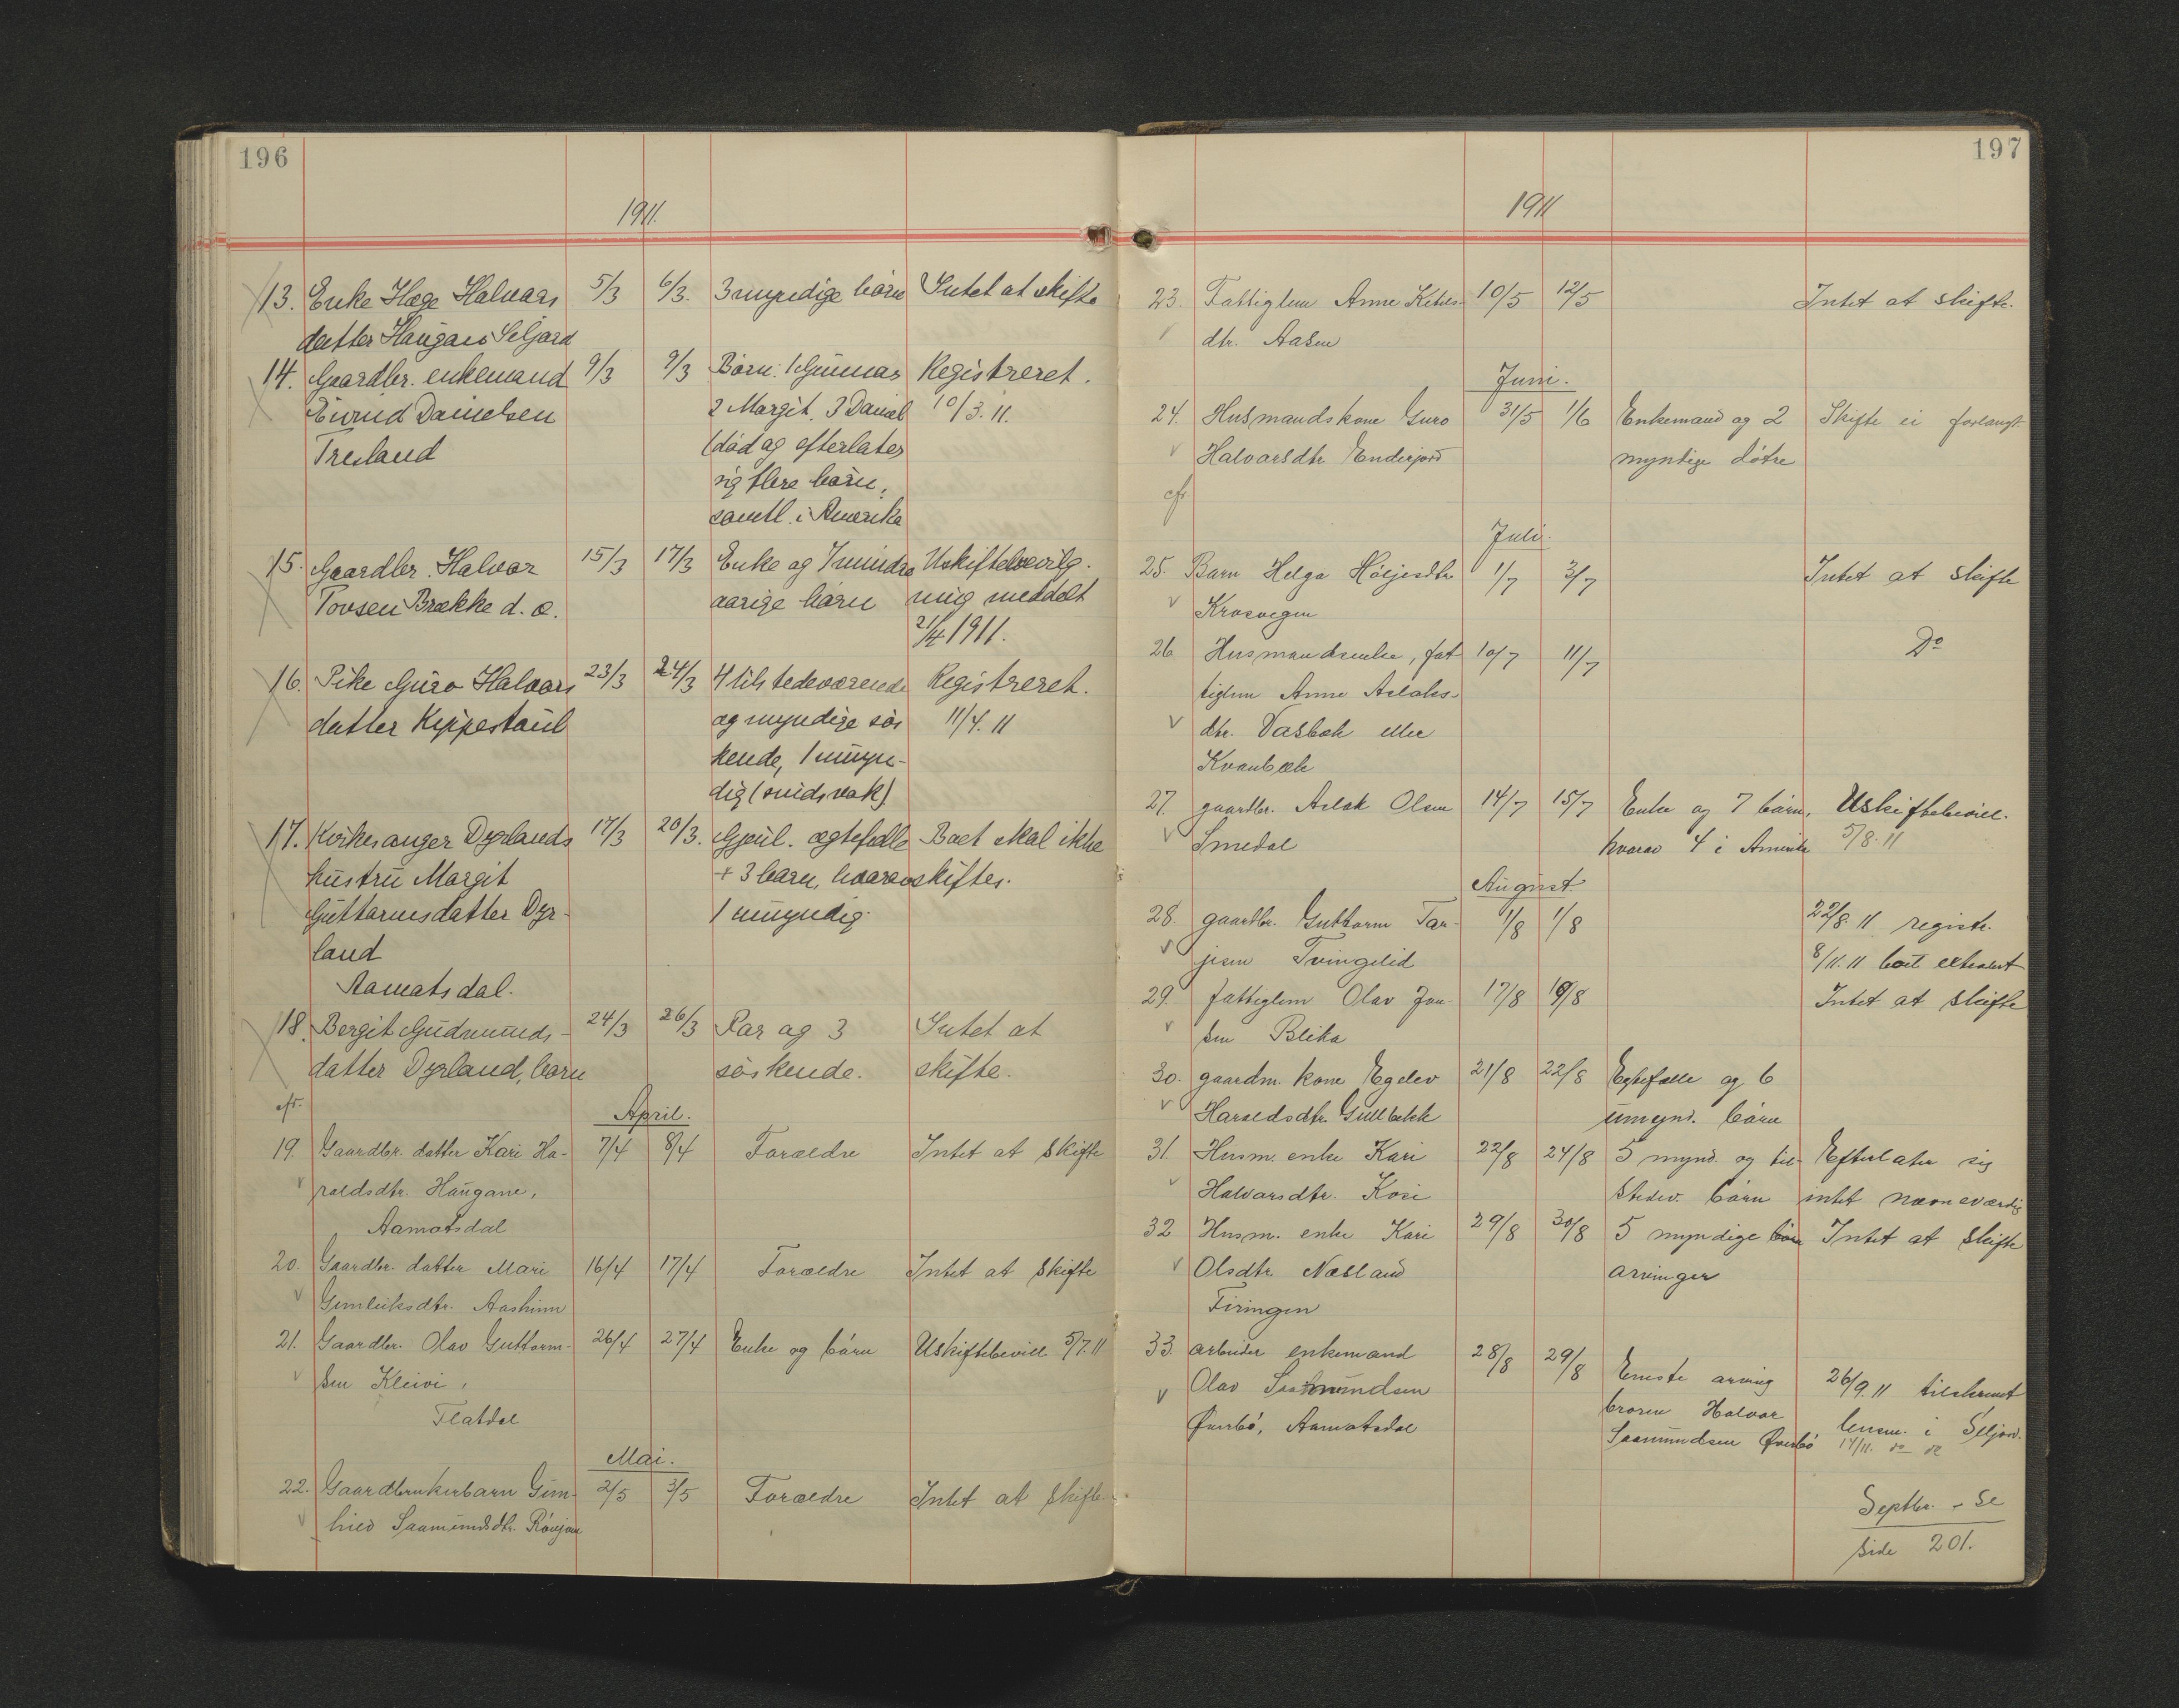 196
1911.
13. Enke Hæge Halvars 5/3 6/3. 3 myndige börn Intet at skifte
datter Haugan Seljord
14. Gaardbr. enkemand 9/3 9/3 Börn: 1 Gunnar Registreret.
Eivind Danielsen 2 Margit. 3 Daniel 10/3. 11.
Treiland (död og efterlater
sig flere börn,
samtl. i Amerika
15. Gaardbr. Halvor 15/3 17/3 Enke og 7 mindre Uskiftebevilg.
Tovsen Brække d. æ. aarige börn ning meddelt
21/4 1911.
16. Pike Guro Halvors 23/3 24/3 4 tilstedeværende Registreret.
datter Kippestaul og myndige søs 11/4. 11
kende, 1 umyn-
dig (sindsvak)
17. Kirkesanger Dyrlands 17/3 20/3. Gjenl. ægtefælle Boet skal ikke
hustru Margit + 3 barn, hvorav skiftes.
Guttormsdatter Dyr- 1 umyndig.
land
Aamotsdal.
18. Bergit Gudmunds- 24/3 26/3 Far og 3 Intet at
datter Dyrland, barn søskende. skifte.
cfr.
April.
19. Gaardbr. datter Kari Ha- 7/4 8/4 Forældre Intet at skifte
raldsdtr. Haugane,
Aamotsdal
20. Gaardbr. datter Mari 16/4 17/4 Forældre Intet at skifte
Gunleiksdtr. Aasheim
21. Gaardbr. Olav Guttorm- 26/4 27/4 Enke og börn Uskiftebevill. 5/7. 11
sen Kleivi,
Flatdal
Mai.
22. Gaardbrukerbarn Gun- 2/5 3/5 Forældre Intet at skifte
hild Saamundsdtr. Rönjom
197
1911
23. Fattiglem Anne Ketils- 10/5 12/5 Intet at skifte.
dtr. Aasen
Juni.
24. Husmandskone Guro 31/5 1/6 Enkemand og 2 Skifte ei forlangt.
Halvorsdtr. Enderjord myntige døtre
cfr
Juli.
25. Barn Helga Höljesdtr. 1/7 3/7 Intet at skifte
Krosvegen
26 Husmandsenke, fat- 10/7 11/7 Do
tiglem Anne Aslaks-
dtr. Vasbæk eller
Kvanbæk
27. gaardbr. Aslak Olsen 14/7 15/7 Enke og 7 börn, Uskiftebevill.
Smedal hvorav 4 i Amerika 5/8. 11
August.
28. gaardbr. Guttorm Tar- 1/8 1/8 22/8. 11 registr.
jesen Tvingelid 8/11. 11 boet extradert
29. fattiglem Olav Jon- 17/8 19/8 Intet at skifte
sen Blika
30. gaardm. kone Egelev 21/8 22/8 Egtefælle og 6
Haraldsdtr. Gullbekk umynd. börn
31. Husm. enke Kari 22/8 24/8 5 mynd. og til- Efterlater sig
Halvorsdtr. Kosi stedev. börn intet nævneværdig
32 Husm. enke Kari 29/8 30/8 5 myndige börn Intet at skifte
Olsdtr. Næsland arvinger
Firingen
33. arbeider enkemand 28/8 29/8 Eneste arving 26/9. 11 tilskrevet
Olav Saamundsen broren Halvor lensm. i Seljord.
Øverbö, Aamotsdal Saamundsen Øverbö 14/11. do do
Septbr. - se
side 201.